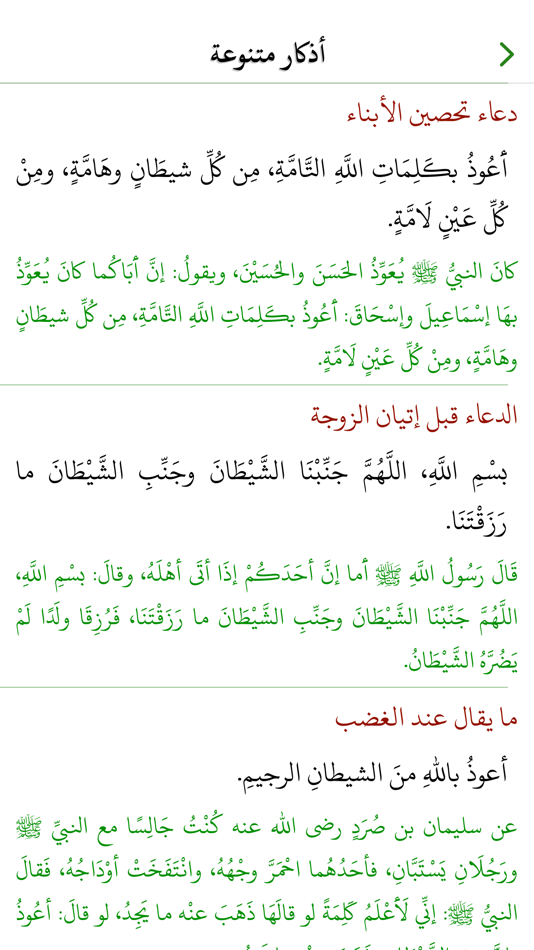 أذكار متنوعة
دعاء تحصين الأبناء
أَعُوذُ بكَلِمَاتِ اللَّهِ التَّامَّةِ، مِن كُلِّ شيطَانٍ وهَامَّةٍ، ومِنْ
كُلِّ عَيْنٍ لَامَّةٍ.
كانَ النبيُّ ﷺ يُعَوِّذُ الحَسَنَ والحُسَيْنَ، ويقولُ: إنَّ أبَاكُما كانَ يُعَوِّذُ
بهَا إسْمَاعِيلَ وإسْحَاقَ: أعُوذُ بكَلِمَاتِ اللَّهِ التَّامَّةِ، مِن كُلِّ شيطَانٍ
وهَامَّةٍ، ومِنْ كُلِّ عَيْنٍ لَامَّةٍ.
الدعاء قبل إتيان الزوجة
بسْمِ اللَّهِ، اللَّهُمَّ جَنِّبْنَا الشَّيْطَانَ وجَنِّبِ الشَّيْطَانَ ما
رَزَقْتَنَا.
قَالَ رَسُولُ اللَّهِ ﷺ أما إنَّ أحَدَكُمْ إذَا أتَى أهْلَهُ، وقالَ: بسْمِ اللَّهِ،
اللَّهُمَّ جَنِّبْنَا الشَّيْطَانَ وجَنِّبِ الشَّيْطَانَ ما رَزَقْتَنَا، فَرُزِقَا ولَدًا لَمْ
يَضُرَّهُ الشَّيْطَانُ.
ما يقال عند الغضب
أعوذُ باللهِ منَ الشيطانِ الرجيمِ.
عن سليمان بن صُرَدٍ رضى الله عنه كُنْتُ جَالِسًا مع النبيِّ ﷺ
ورَجُلَانِ يَسْتَبَّانِ، فأحَدُهُما احْمَرَّ وجْهُهُ، وانْتَفَخَتْ أوْدَاجُهُ، فَقالَ
النبيُّ ﷺ: إنِّي لَأَعْلَمُ كَلِمَةً لو قالَهَا ذَهَبَ عنْه ما يَجِدُ، لو قالَ: أعُوذُ